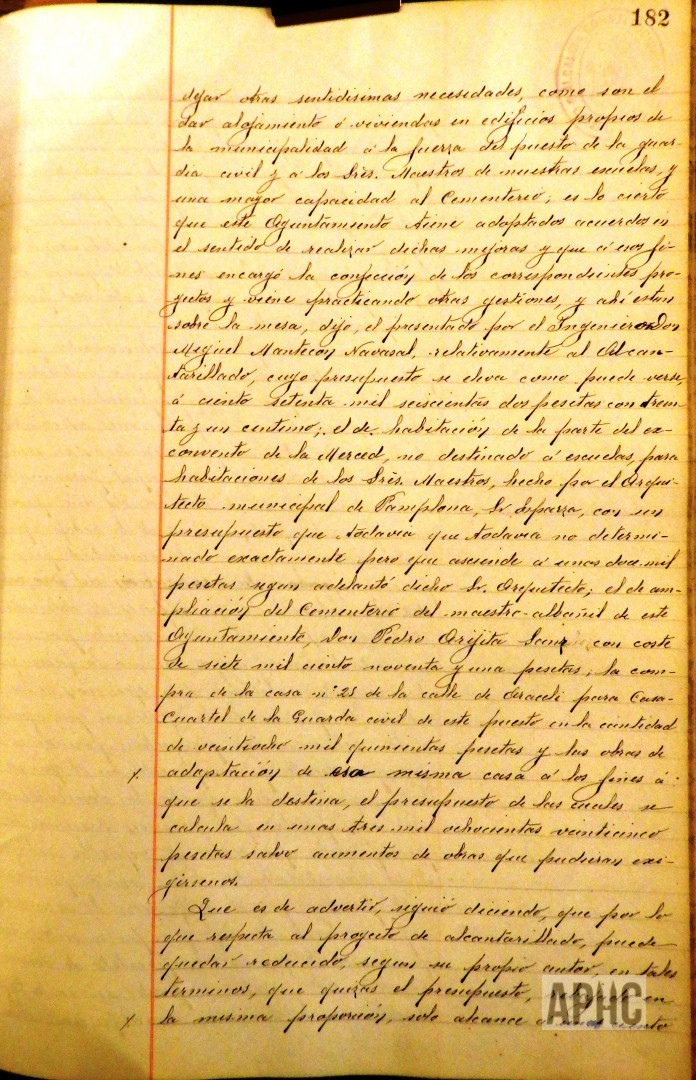 182
dejar otras sentidisimas necesidades, como son el
dar alojamiento ó viviendas en edificios propios de
la municipalidad á la fuerza del puesto de la guar-
dia civil y á los Srés. Maestros de nuestras escuelas, y
una mayor capacidad al Cementerio; es lo cierto
que este Ayuntamiento tiene adoptados acuerdos en
el sentido de realizar dichas mejoras y que á esos fi-
nes encargó la confección de los correspondientes pro-
yectos y viene practicando otras gestiones, y ahi estan
sobre la mesa, dijo, el presentado por el Ingeniero Don
Miguel Mantecon Navasal, relativamente al Alcan-
tarillado, cuyo presupuesto se eleva como puede verse,
á ciento setenta mil seiscientas dos pesetas con trein-
ta y un centimo; el de habitación de la parte del ex-
convento de la Merced, no destinado á escuelas, para
habitaciones de los Srés. Maestros, hecho por el Arqui-
tecto municipal de Pamplona, Sr Esparza, con un
presupuesto que todavia que todavia no determi-
nado exactamente pero que asciende á unas doce mil
pesetas segun adelantó dicho Sr. Arquitecto; el de am-
pliación del Cementerio del maestro-albañil de este
Ayuntamiento, Don Pedro Arijita con coste
de siete mil ciento noventa y una pesetas; la com-
pra de la casa nº 25 de la calle de Araceli para Casa-
Cuartel de la Guarda civil de este puesto en la cantidad
de veintiocho mil quinientas pesetas y las obras de
adaptación de esa misma casa á los fines á
que se la destina, el presupuesto de las cuales se
calcula en unas tres mil ochocientas veinticinco
pesetas salvo aumentos de obras que pudieran exi-
girsenos.
Que es de advertir, siguió diciendo, que por lo
que respecta al proyecto de alcantarillado, puede
quedar reducido, segun su propio autor, en tales
terminos, que quizás el presupuesto, en
la misma proporción, solo alcance ciento
APHC